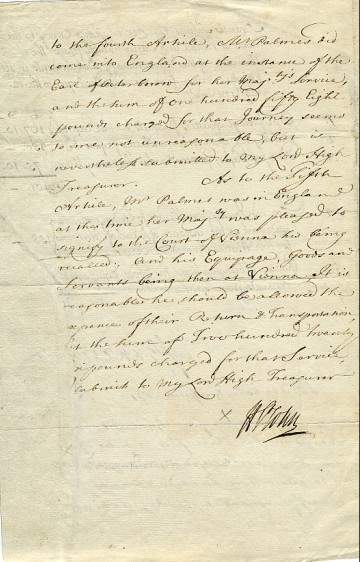 to the fourth Article, Mr. Palmes did
come into England at the instance of the
Earl of Peterborow for her Majtys Service,
and the sum of one hundred fifty Eight
pounds charged for that Journey seems
to me not unreasonable, but is
nevertheless submitted to My Lord High
Treasurer. As to the Fifth
Article, Mr Palmes was in England
at the time her Majty was pleased to
signify to the Court of Vienna his being
recalled; And his Equipage, Goods and
Servants being then at Vienna It is
reasonable he should be allowed the
xpence of their Return & Transportation,
the sum of Two hundred twenty
pounds charged for that Service,
submit to My Lord High Treasurer
H St John